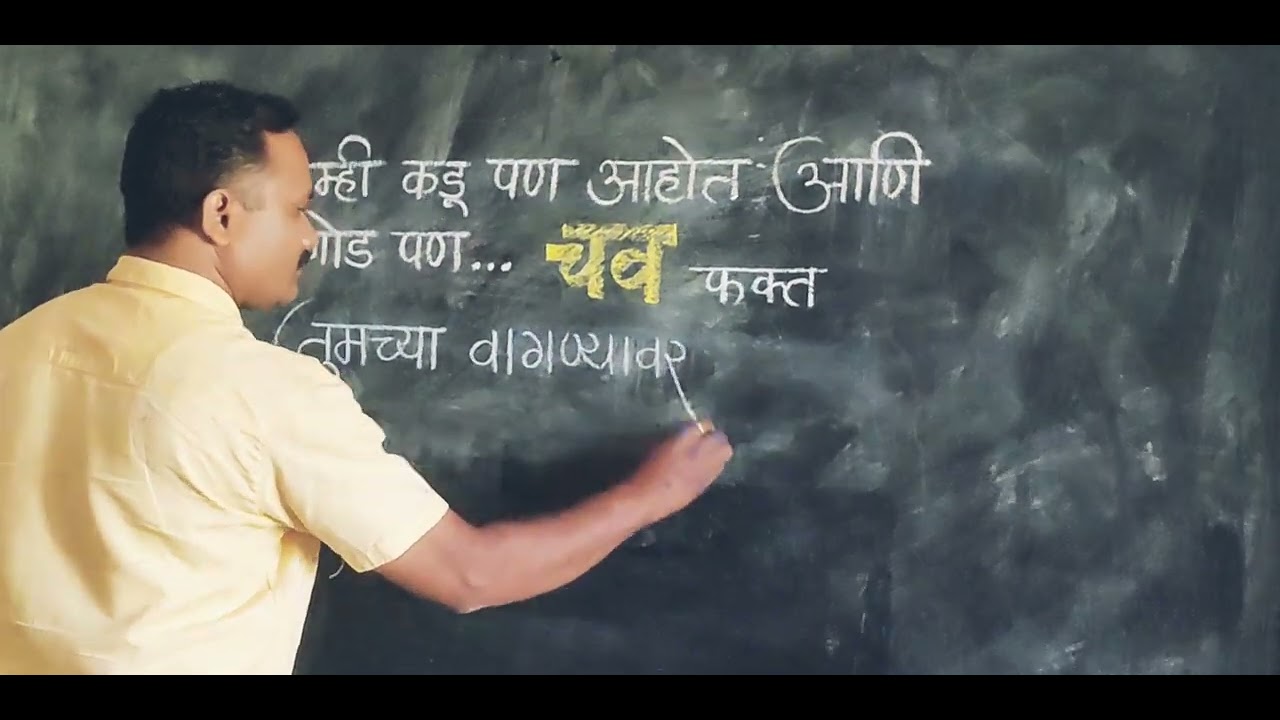 म्ही कडू पण आहोत आणि
गोड पण... चव फक्त
तुमच्या वागण्यावर